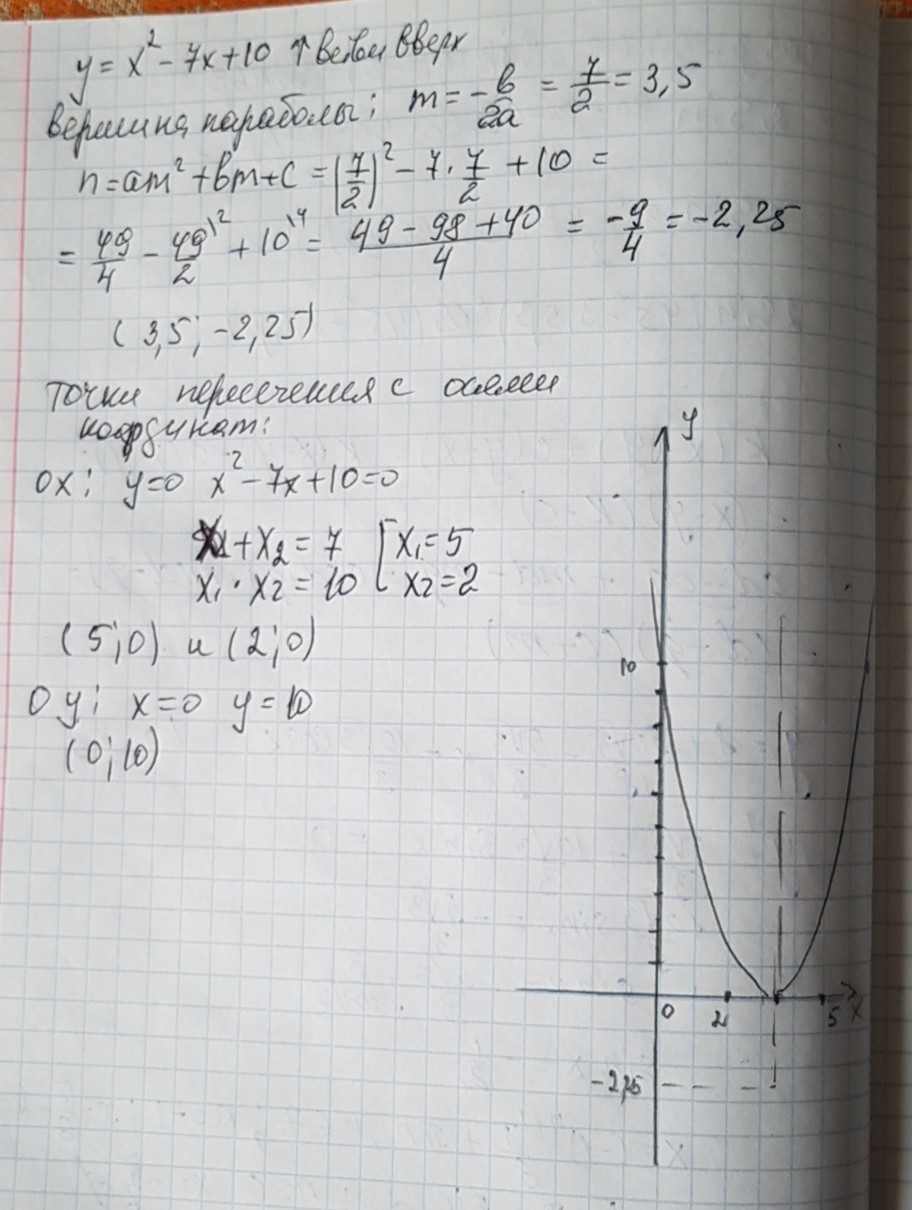 y = x² - 7x + 10 ↑ ветви вверх
вершина параболы: m = -в/2а = 7/2 = 3,5
n = am² + bm + c = (7/2)² - 7 · 7/2 + 10 =
= 49/4 - 49/2\2 + 10\4 = (49 - 98 + 40)/4 = -9/4 = -2,25
(3,5; -2,25)
точки пересечения с осями
координат:
ox: y=0 x² - 7x + 10 = 0
x₁ + x₂ = 7 [ x₁ = 5
x₁ · x₂ = 10 [ x₂ = 2
(5;0) и (2;0)
Oy: x=0 y=10
(0;10)
y
10
0 2 5 x
-2,25